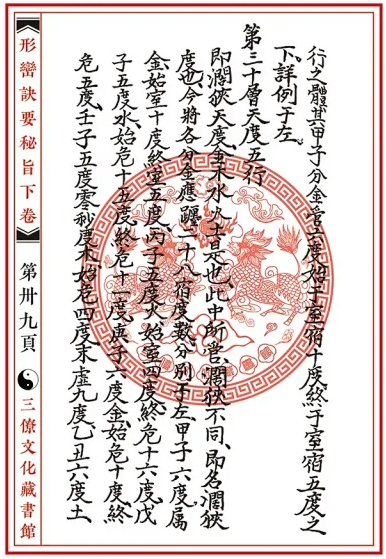 行之體其甲子分金管六度始于室宿十度終于室宿五度之
下詳例于左
第三十層天度五行
即濶狹天度金木水火土是也此中所管濶狹不同即名濶狹
度也今將各分金應躔二十八宿度數分別于左甲子六度屬
金始室十度終室五度丙子五度火始室四度終危十六度戊
子五度水始危十五度終危十一度庚子六度金始危十度終
危五度壬子五度零秒度木始危四度末虛九度乙丑六度土
形巒訣要秘旨下卷
第卅九頁
三僚文化藏書館